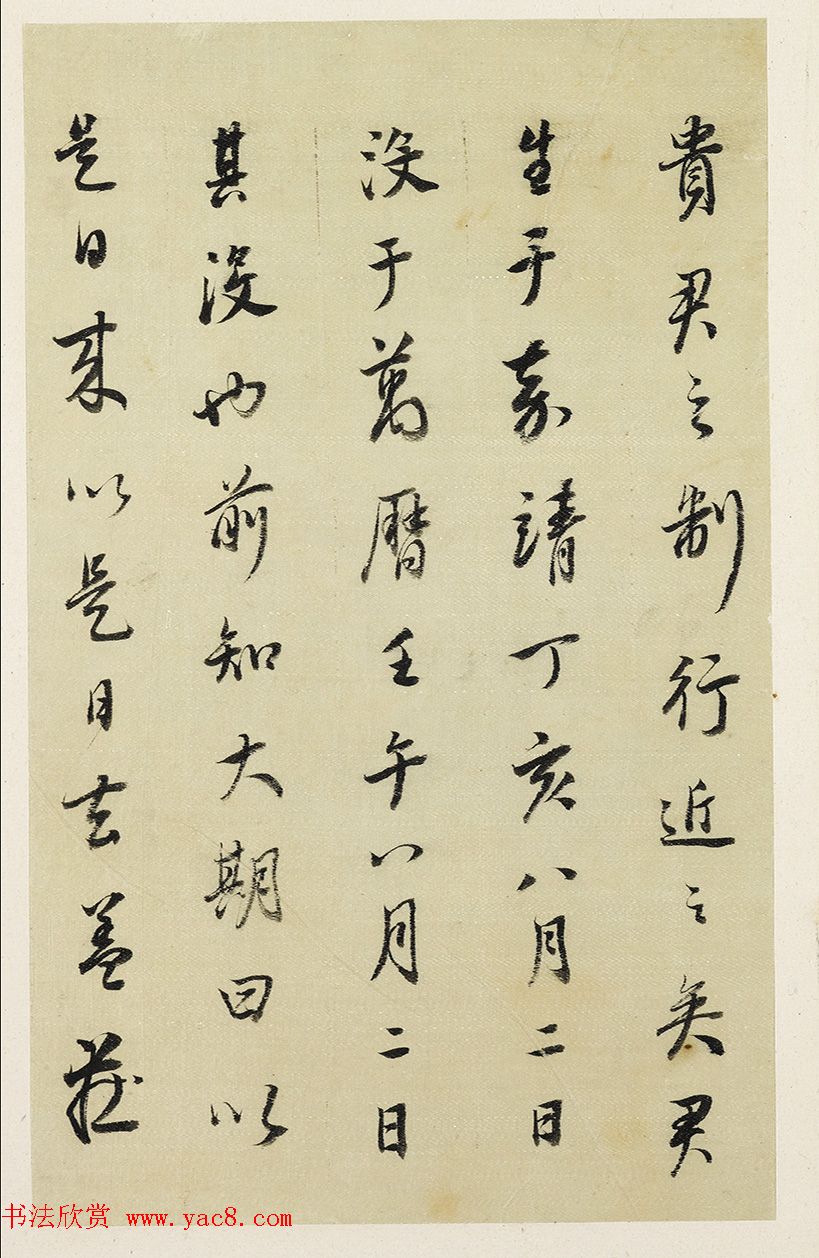 貴君之制行近之矣君
生于嘉靖丁亥八月二日
没于萬曆壬午八月二日
其没也前知大期曰以
是日來以是日去蓋莊
书法欣赏 www.yac8.com